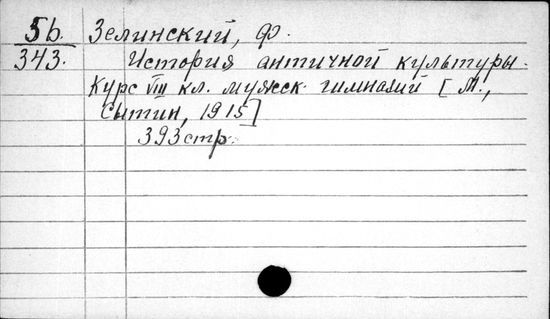 5б. Зелинский, Ф.
343. История античной культуры.
Курс VIII кл. мужск. гимназий [М.,
Сытин, 1915]
393 стр.